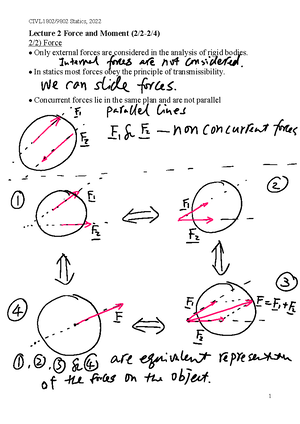 CIVL1802/9802 Statics, 2022
Lecture 2 Force and Moment (2/2-2/4)
2/2) Force
• Only external forces are considered in the analysis of rigid bodies.
Internal forces are not considered.
• In statics most forces obey the principle of transmissibility.
We can slide forces.
• Concurrent forces lie in the same plan and are not parallel
parallel lines
F₁
F₂
F₁ & F₂ — non concurrent forces
①
F₁
F₂
②
F₁
F₂
③
F₁
F₂
F=F₁+F₂
④
F
①, ②, ③ & ④ are equivalent representation
of the forces on the object.
1